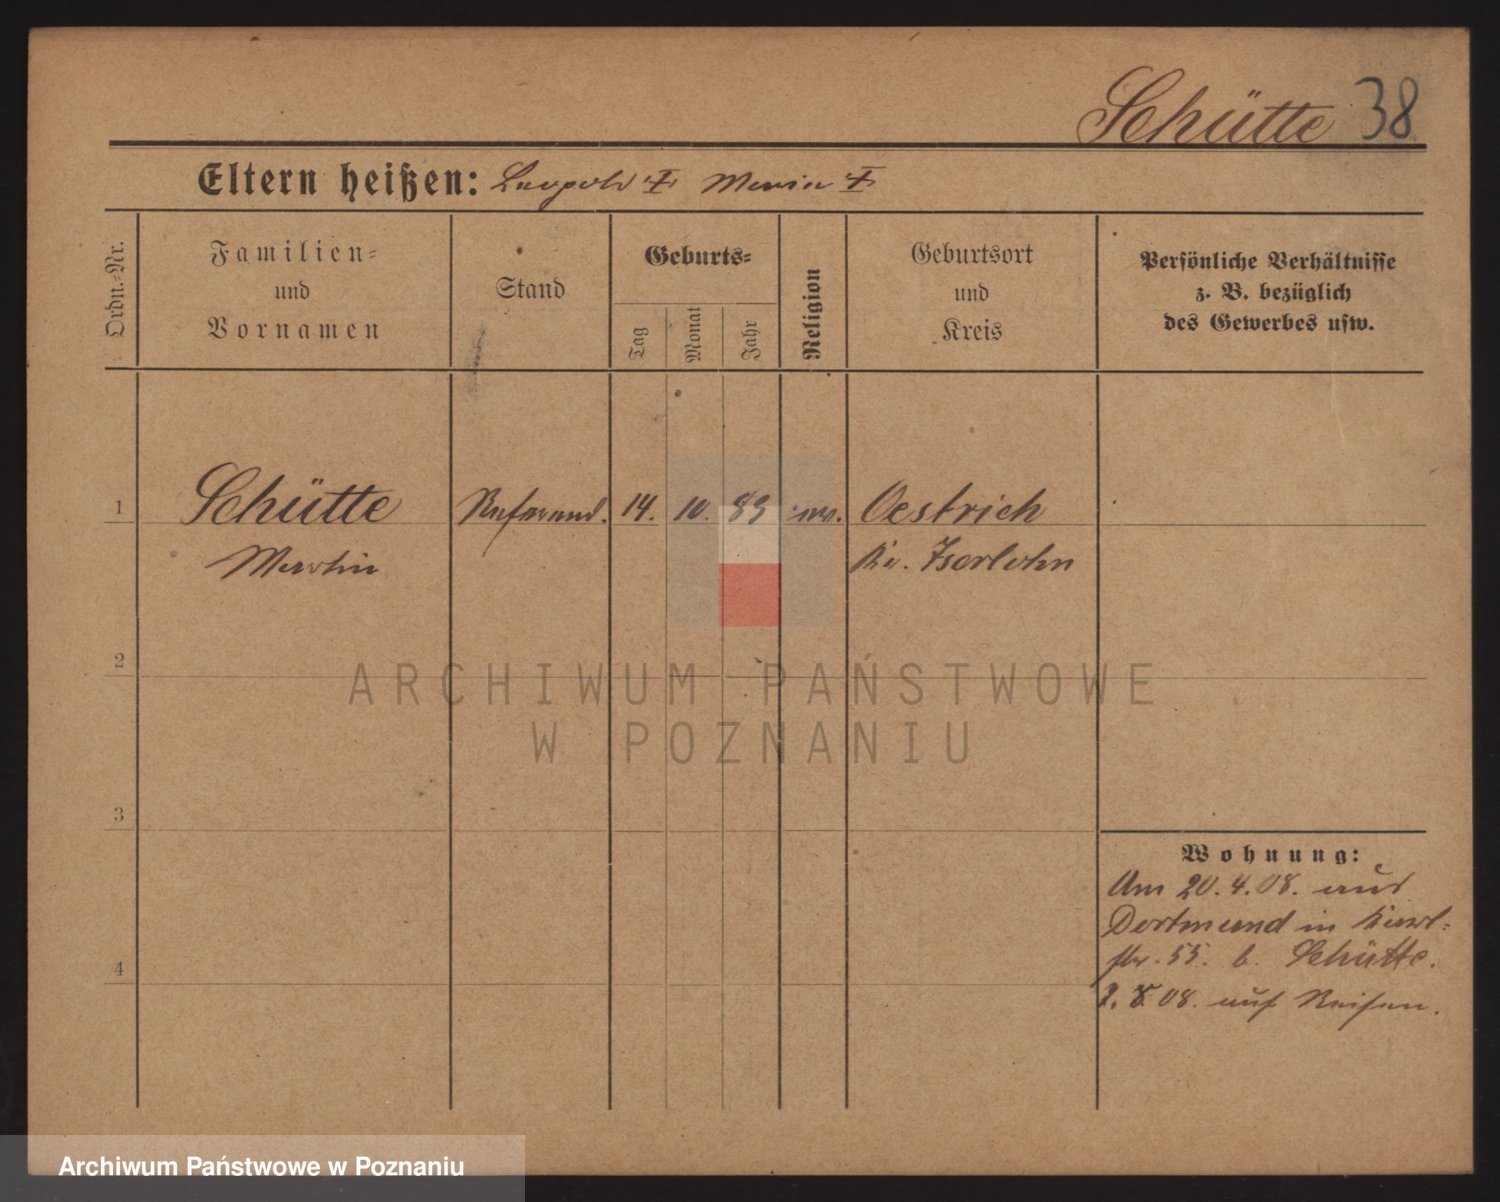 Schütte 38
Eltern heißen: Leopold ‡ Maria ‡
Ordn.-Nr.
Familien=
und
Vornamen
Stand
Geburts=
Tag
Monat
Jahr
Religion
Geburtsort
und
Kreis
Persönliche Verhältnisse
z. B. bezüglich
des Gewerbes usw.
1 Schütte Referend. 14. 10. 83 Oestrich
Martin Kr. Iserlohn
2
ARCHIWUM PAŃSTWOWE
W POZNANIU
3
Wohnung:
Am 20.4.08. aus
Dortmund in
str. 55. b. Schütte.
8.08. auf Reisen.
4
Archiwum Państwowe w Poznaniu